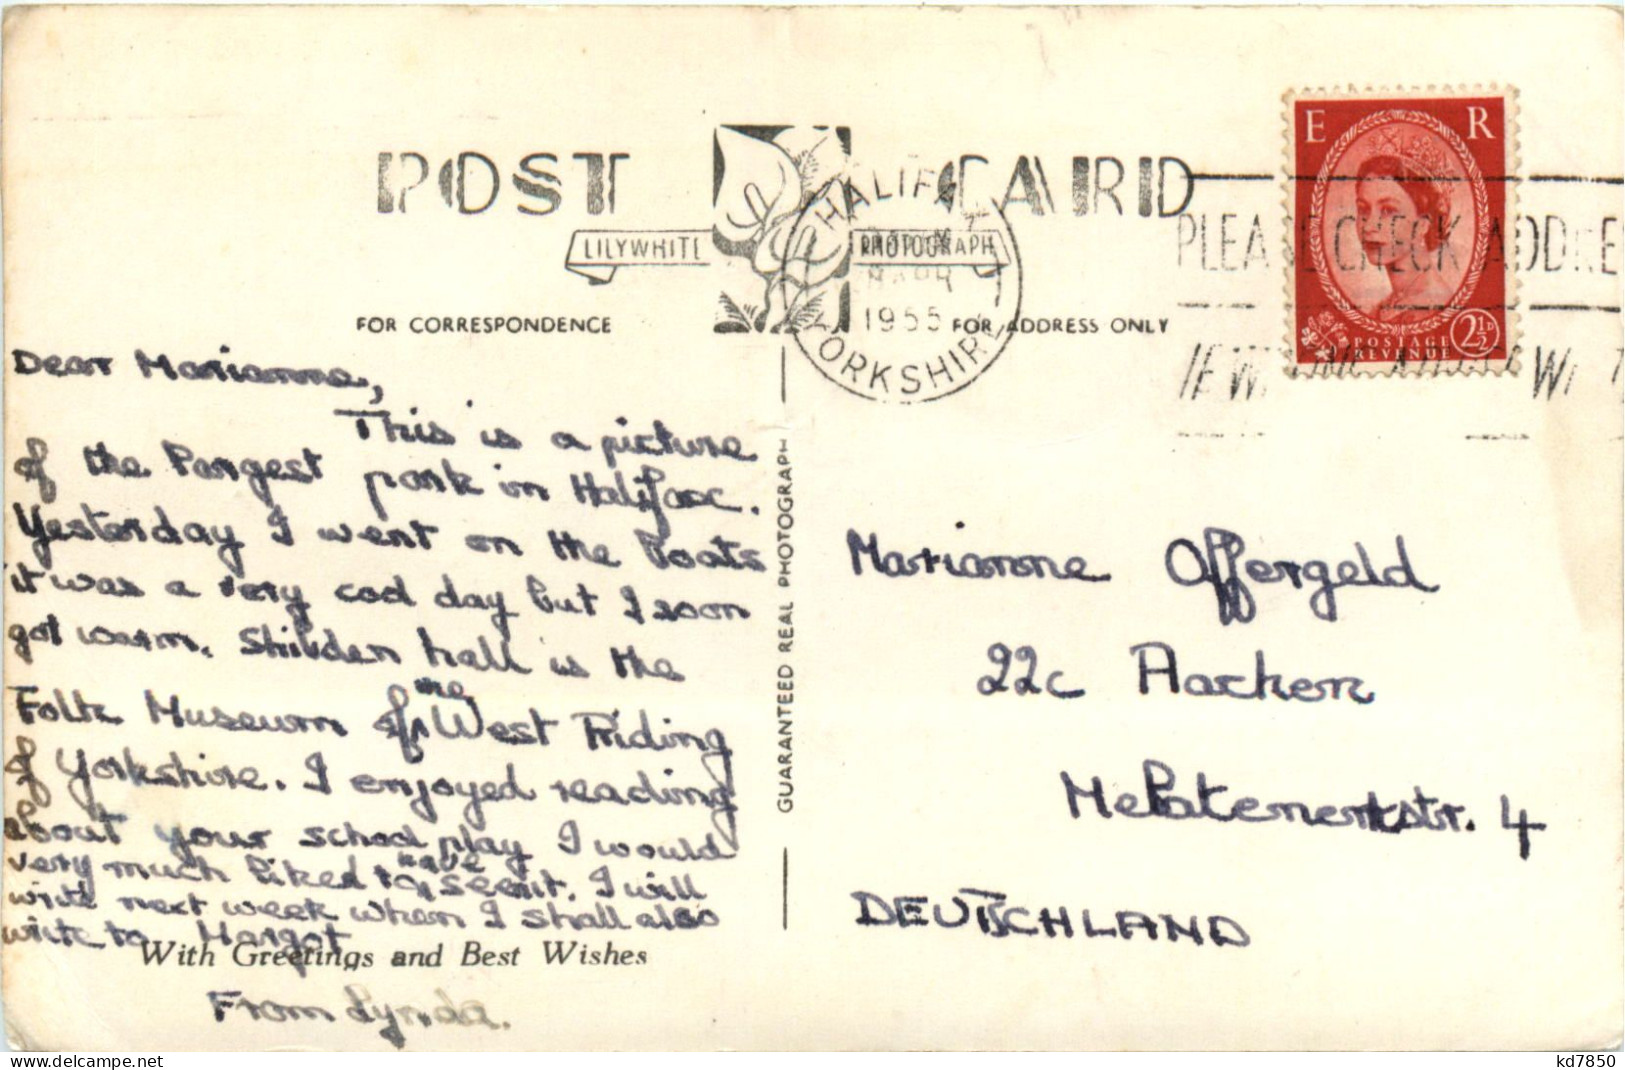 POST CARD
LILYWHITE PHOTOGRAPH
HALIFAX
APR
1955
YORKSHIRE
PLEASE CHECK ADDRE
E R
POSTAGE
REVENUE
2½D
FOR CORRESPONDENCE
FOR ADDRESS ONLY
GUARANTEED REAL PHOTOGRAPH
Dear Marianne,
This is a picture
of the largest park in Halifax.
Yesterday I went on the boats
it was a very cod day but I soon
got warm. Shibden hall is the
Folk Museum of the West Riding
of Yorkshire. I enjoyed reading
about your school play I would
very much liked to have seen it. I will
write next week when I shall also
write to Margot
With Greetings and Best Wishes
From Lynda.
Marianne Offergeld
22c Aachen
Melatenerstr. 4
DEUTSCHLAND
www.delcampe.net
kd7850